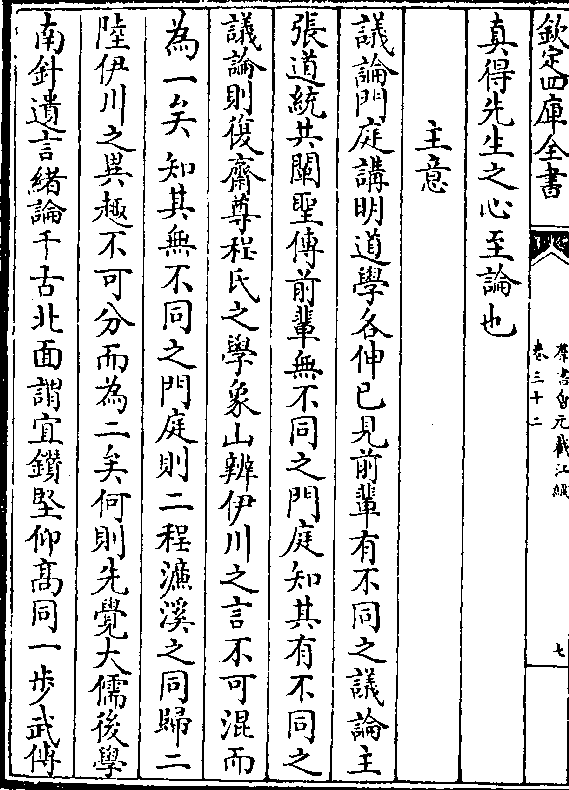 欽定四庫全書
羣書會元截江網
卷三十二
七
真得先生之心至論也
主意
議論門庭講明道學各伸已見前輩有不同之議論主
張道統共闡聖傳前輩無不同之門庭知其有不同之
議論則復齋尊程氏之學象山辨伊川之言不可混而
為一矣知其無不同之門庭則二程濂溪之同歸二
陸伊川之異趣不可分而為二矣何則先覺大儒後學
南針遺言緒論千古北面謂宜鑽堅仰高同一步武傳